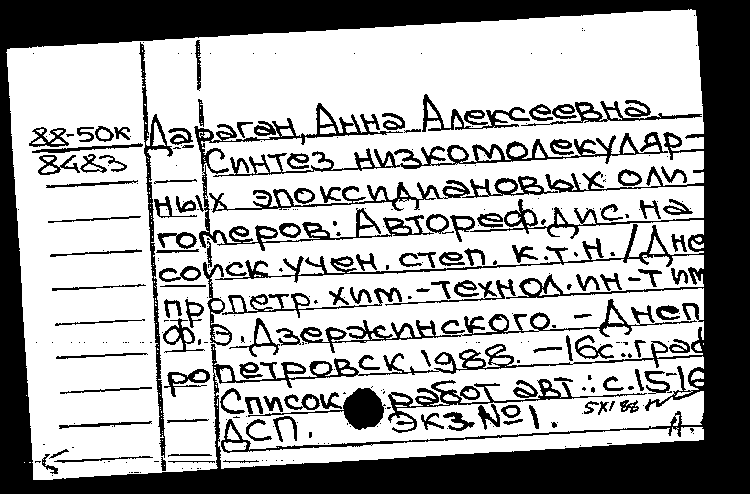 88-50к
8483
Дараган, Анна Алексеевна.
Синтез низкомолекуляр-
ных эпоксидиановых оли-
гомеров: Автореф.дис. на
соиск.учен.степ. к.т.н. /Дне
пропетр. хим.-технол.ин-т им
Ф.Э.Дзержинского. - Днеп
ропетровск, 1988. - 16с.:граф
Список работ авт.: с.15-16
ДСП. Экз.№1.
А.